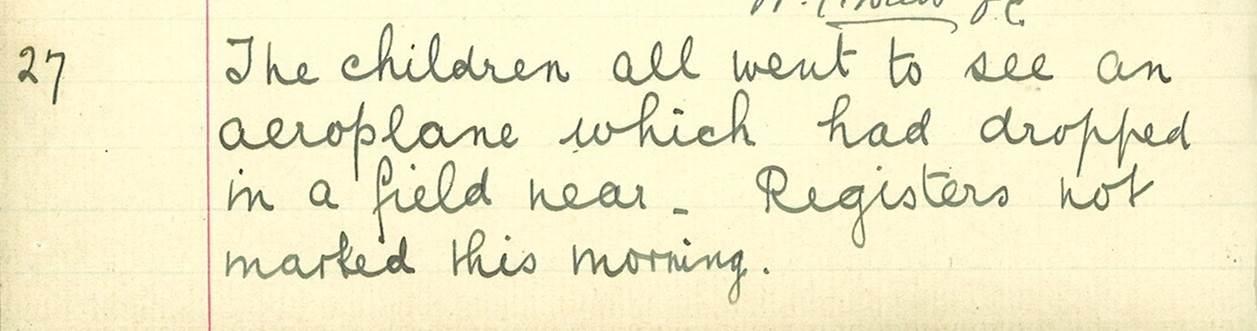 27 The children all went to see an
aeroplane which had dropped
in a field near - Registers not
marked this morning.